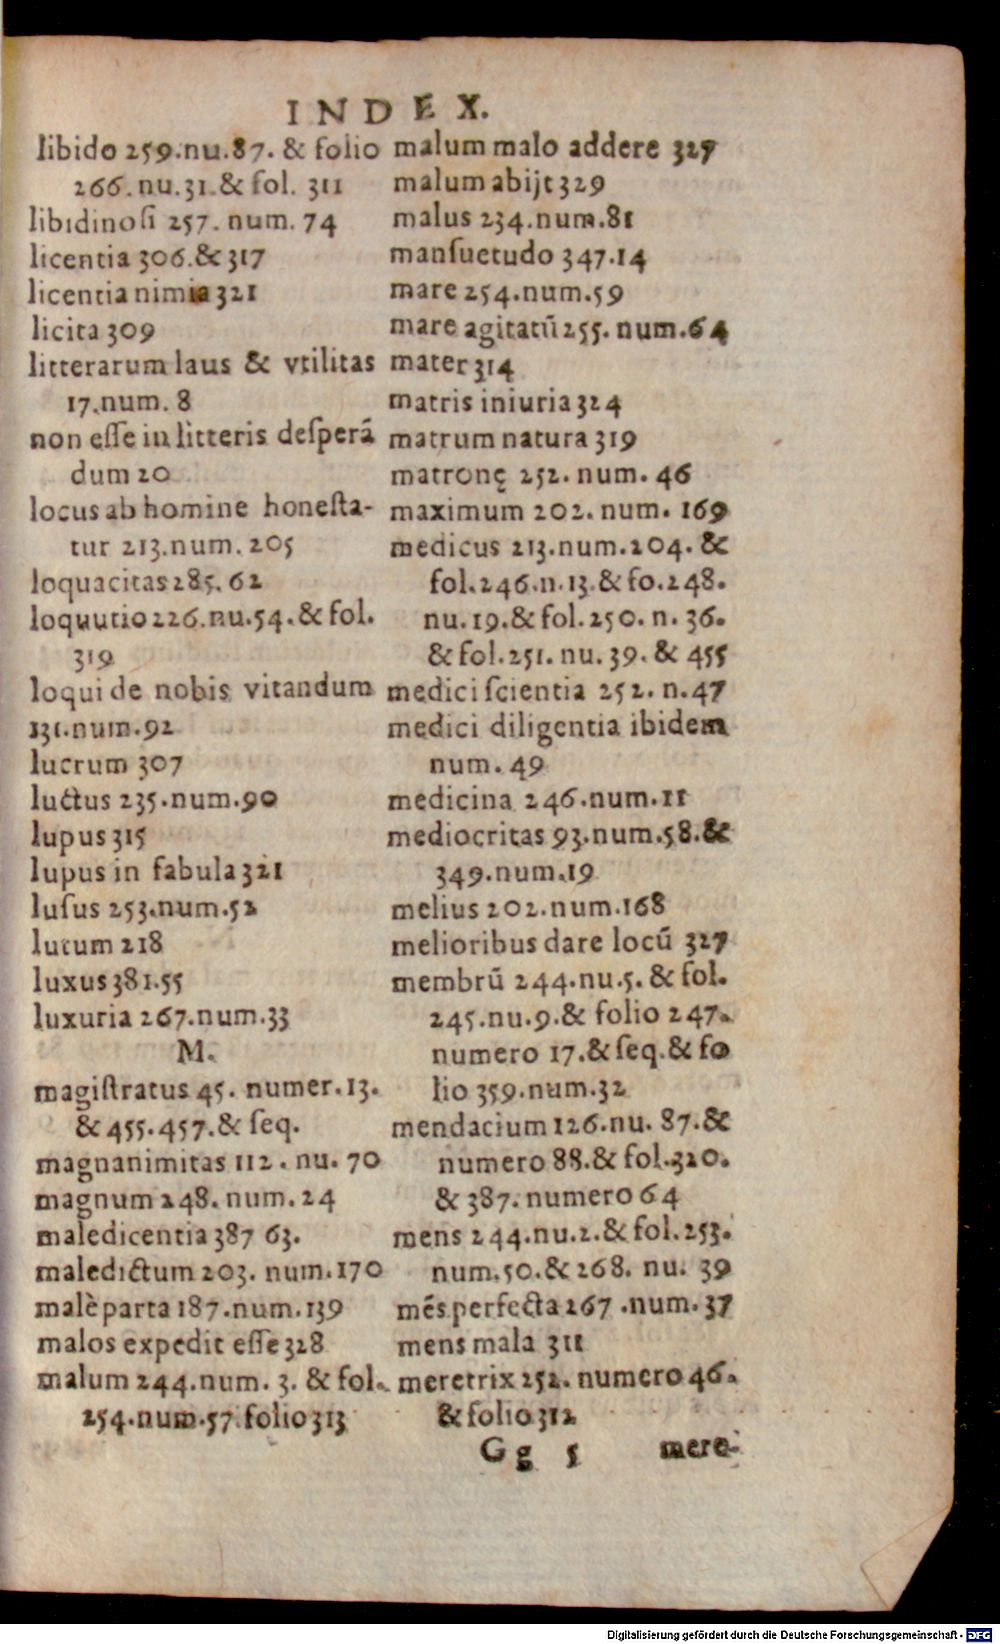 INDEX.
libido 259.nu.87. & folio
266.nu.31.& fol. 311
libidinoſi 257. num. 74
licentia 306.& 317
licentia nimia 321
licita 309
litterarum laus & vtilitas
17.num. 8
non eſſe in litteris deſperā
dum 20
locus ab homine honeſta-
tur 213.num. 205
loquacitas 285. 62
loquutio 226.nu.54.& fol.
319
loqui de nobis vitandum
131.num.92
lucrum 307
luctus 235.num.90
lupus 315
lupus in fabula 321
luſus 253.num.52
lutum 218
luxus 381.55
luxuria 267.num.33
M.
magiſtratus 45. numer.13.
& 455.457.& ſeq.
magnanimitas 112. nu. 70
magnum 248. num. 24
maledicentia 387 63.
maledictum 203. num.170
malè parta 187.num.139
malos expedit eſſe 328
malum 244.num. 3. & fol.
254.num.57 folio 313
malum malo addere 327
malum abijt 329
malus 234.num.81
manſuetudo 347.14
mare 254.num.59
mare agitatū 255. num.64
mater 314
matris iniuria 324
matrum natura 319
matronę 252. num. 46
maximum 202. num. 169
medicus 213.num.204. &
fol.246.n.13.& fo.248.
nu.19.& fol.250. n. 36.
& fol.251. nu. 39. & 455
medici ſcientia 252. n.47
medici diligentia ibidem
num. 49
medicina 246.num.11
mediocritas 93.num.58.&
349.num.19
melius 202.num.168
melioribus dare locū 327
membrū 244.nu.5. & fol.
245.nu.9.& folio 247.
numero 17.& ſeq.& fo
lio 359.num.32
mendacium 126.nu. 87.&
numero 88.& fol.320.
& 387. numero 64
mens 244.nu.2.& fol.253.
num.50.& 268. nu. 39
mēs perfecta 267.num.37
mens mala 311
meretrix 252. numero 46.
& folio 312
Gg 5 mere-
Digitalisierung gefördert durch die Deutsche Forschungsgemeinschaft - DFG